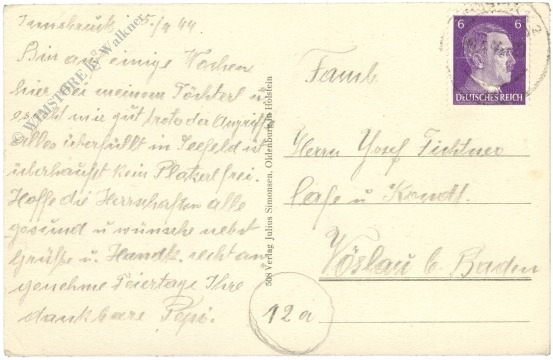 Innsbruck 5/9 44
Bin auf einige Wochen
hier bei meinem Töchterl u
es geht mir gut trotz der Angriffe
alles überfüllt in Seefeld ist
überhaupt kein Platzerl frei.
Hoffe die Herrschaften alle
gesund u wünsche nebst
Grüße u. Handk. recht an
genehme Feiertage Ihre
dankbare Pepi.
© WIMSTORE by Walkner
508 Verlag Julius Simonsen, Oldenburg in Holstein
6 6
DEUTSCHES REICH
Faml.
Herrn Josef Fichtner
Cafe u Kondt.
Vöslau b. Baden
12a